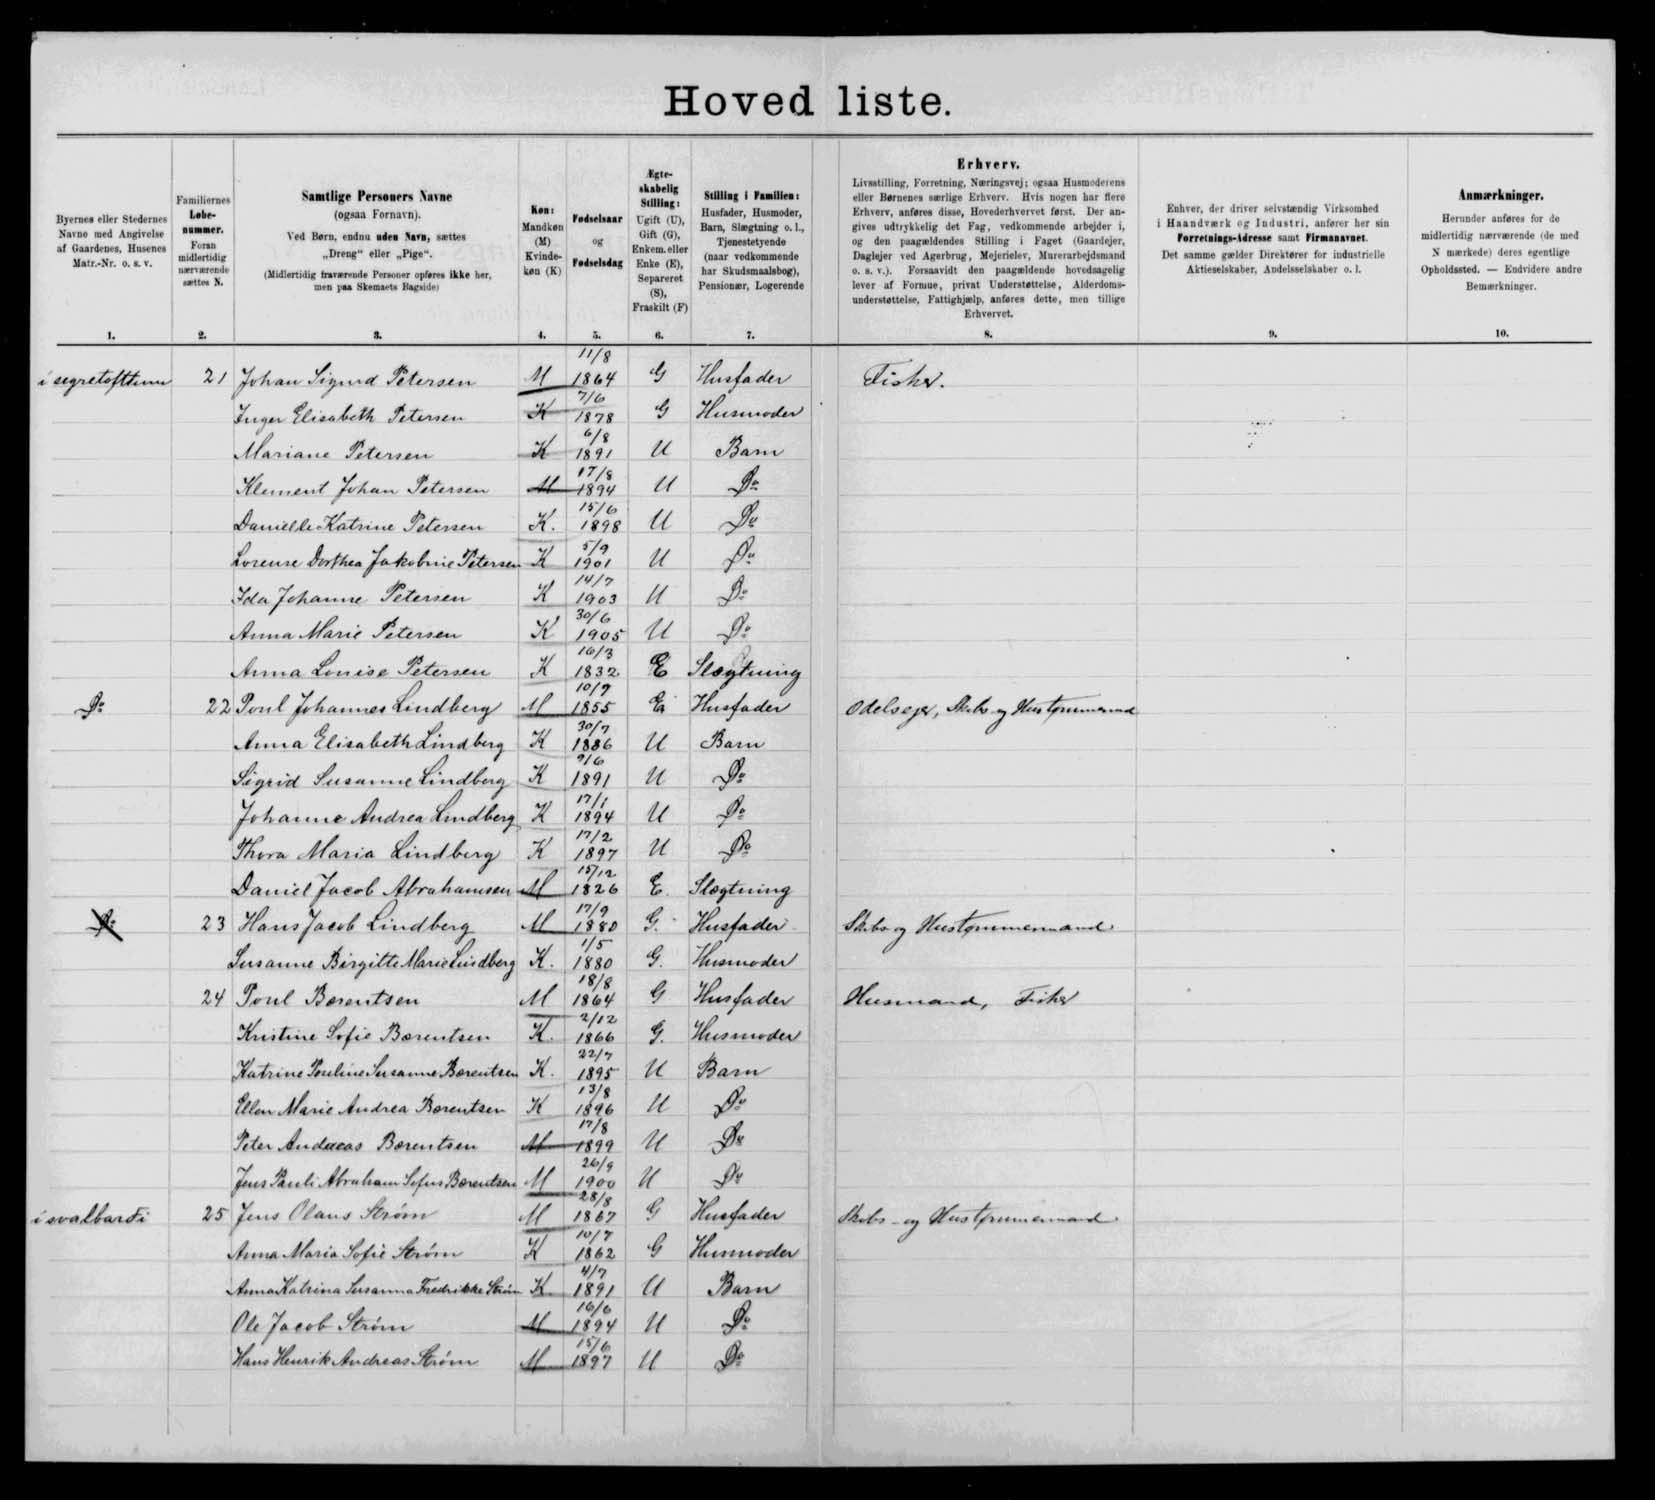 Hoved liste.
Byernes eller Stedernes
Navne med Angivelse
af Gaardenes, Husenes
Matr.-Nr. o. s. v.
1.
Familiernes
Løbe-
nummer.
Foran
midlertidig
nærværende
sættes N.
2.
Samtlige Personers Navne
(ogsaa Fornavn).
Ved Børn, endnu uden Navn, sættes
„Dreng“ eller „Pige“.
(Midlertidig fraværende Personer opføres ikke her,
men paa Skemaets Bagside)
3.
Køn:
Mandkøn
(M)
Kvinde-
køn (K)
4.
Fødselsaar
og
Fødselsdag
5.
Ægte-
skabelig
Stilling:
Ugift (U),
Gift (G),
Enkem. eller
Enke (E),
Separeret
(S),
Fraskilt (F)
6.
Stilling i Familien:
Husfader, Husmoder,
Barn, Slægtning o. l.,
Tjenestetyende
(naar vedkommende
har Skudsmaalsbog),
Pensionær, Logerende
7.
Erhverv.
Livsstilling, Forretning, Næringsvej; ogsaa Husmoderens
eller Børnenes særlige Erhverv. Hvis nogen har flere
Erhverv, anføres disse, Hovederhvervet først. Der an-
gives udtrykkelig det Fag, vedkommende arbejder i,
og den paagældendes Stilling i Faget (Gaardejer,
Daglejer ved Agerbrug, Mejerielev, Murerarbejdsmand
o. s. v.). Forsaavidt den paagældende hovedsagelig
lever af Formue, privat Understøttelse, Alderdoms-
understøttelse, Fattighjælp, anføres dette, men tillige
Erhvervet.
8.
Enhver, der driver selvstændig Virksomhed
i Haandværk og Industri, anfører her sin
Forretnings-Adresse samt Firmanavnet.
Det samme gælder Direktører for industrielle
Aktieselskaber, Andelsselskaber o. l.
9.
Anmærkninger.
Herunder anføres for de
midlertidig nærværende (de med
N mærkede) deres egentlige
Opholdssted. — Endvidere andre
Bemærkninger.
10.
21 Johan Sigurd Petersen M 11/8 1864 G Husfader Fisker.
Inger Elisabeth Petersen K 7/6 1878 G Husmoder
Mariane Petersen K 6/8 1891 U Barn
Klement Johan Petersen M 17/8 1894 U Do
Danielle Katrine Petersen K. 15/6 1898 U Do
Lorense Dorthea Jakobine Petersen K 5/9 1901 U Do
Ida Johanne Petersen K 14/7 1903 U Do
Anna Marie Petersen K 30/6 1905 U Do
Anna Lovise Petersen K 16/3 1832 E Slægtning
Do 22 Poul Johannes Lindberg M 10/9 1855 E Husfader Odelsejer, Skibs og Hustømmermand
Anna Elisabeth Lindberg K 30/7 1886 U Barn
Sigrid Susanne Lindberg K 9/6 1891 U Do
Johanne Andrea Lindberg K 17/1 1894 U Do
Thora Maria Lindberg K 17/2 1897 U Do
Daniel Jacob Abrahamsen M 15/12 1826 E. Slægtning
Do 23 Hans Jacob Lindberg M 17/9 1880 G. Husfader Skibs og Hustømmermand
Susanne Birgitte Marie Lindberg K. 1/5 1880 G. Husmoder
24 Poul Børentsen M 18/8 1864 G Husfader Husmand, Fisker
Kristine Sofie Børentsen K. 2/12 1866 G. Husmoder
Katrine Pouline Susanne Børentsen K. 22/7 1895 U Barn
Ellen Marie Andrea Børentsen K 13/8 1896 U Do
Peter Andreas Børentsen M 17/8 1899 U Do
Jens Pauli Abraham Sofus Børentsen M 26/9 1900 U Do
i svalbarði 25 Jens Olaus Strøm M 28/8 1867 G Husfader Skibs- og Hustømmermand
Anna Maria Sofie Strøm K 10/7 1862 G Husmoder
Anna Katrina Susanna Fredrikke Strøm K. 4/7 1891 U Barn
Ole Jacob Strøm M 16/6 1894 U Do
Hans Henrik Andreas Strøm M 15/6 1897 U Do